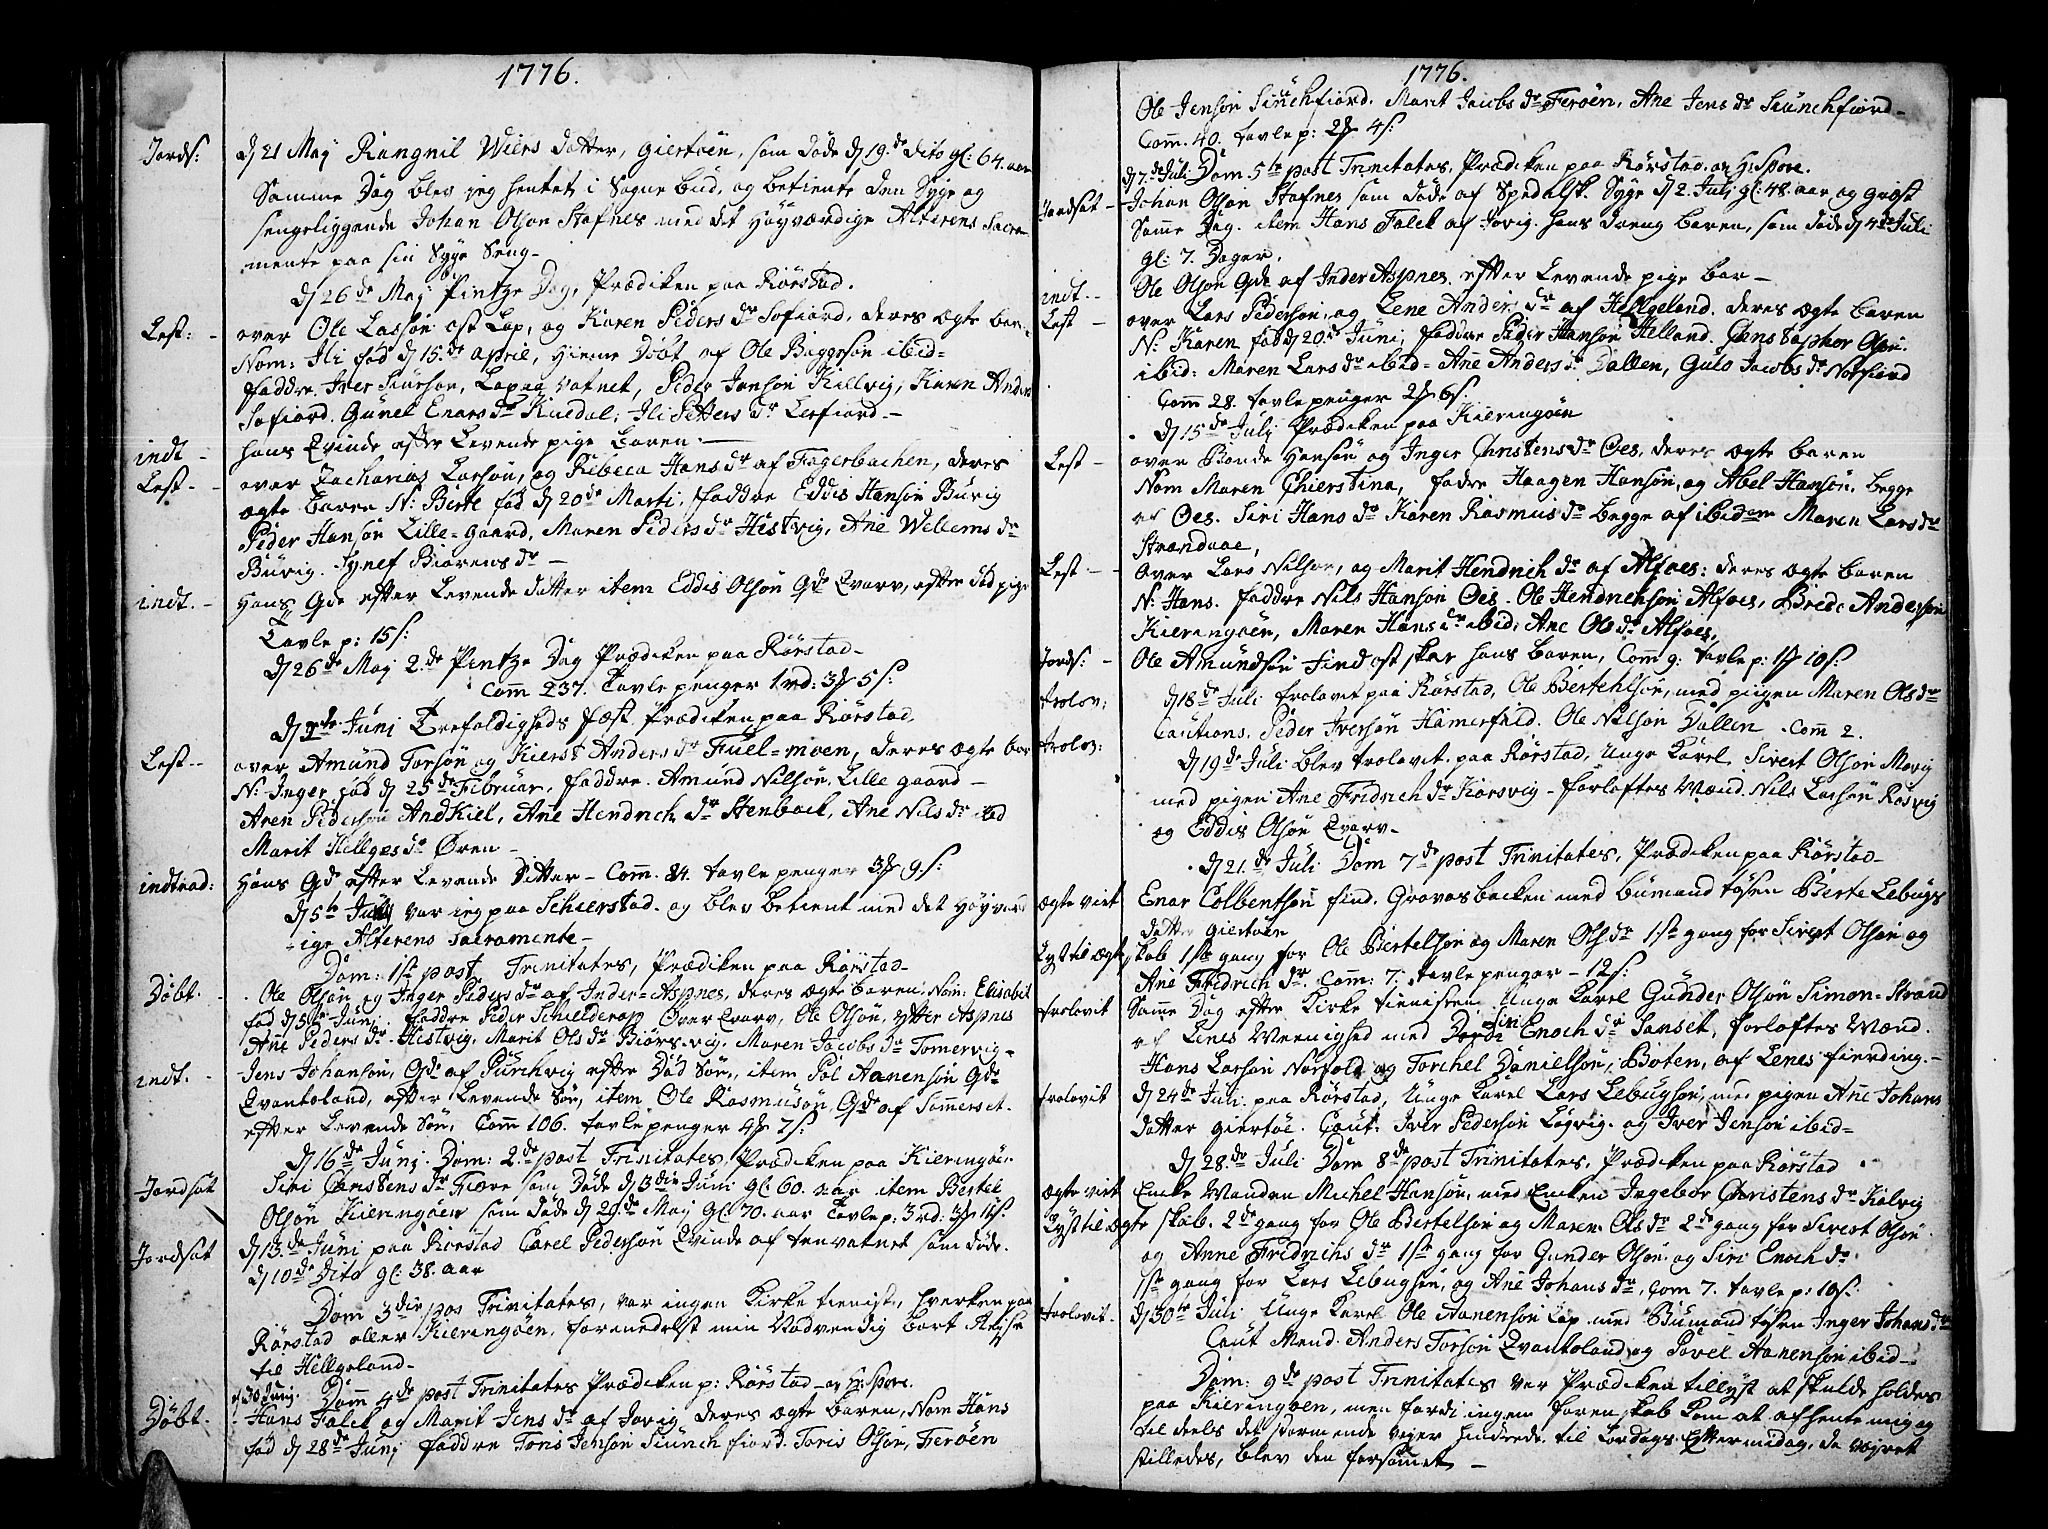 1776.
Jords: d 21 Maj Rangnil Wiers datter, Giertøen, som døde d 19.de dito gl: 64. aar
Samme Dag blev jeg hentet i Sognebud, og betiente den Syge og
sengeliggende Johan Olsøn Stafnes med det Høyværdige Alterens Sacra-
mente paa sin Syge Seng-
d 26de Maj Pintze Dag, Prædiken paa Rørstad.
Lest: - over Ole Lassøn ost Lap, og Karen Peders dr Sofiord, deres ægte barn
Nom: Ili fød d 15.de aprile, hieme Døbt af Ole Baggesøn ibid-
faddre. Iver Siursøn, Lap vatnet, Peder Jonsøn Killvig, Karen Anders
Sofiord. Gunel Enars dr Kiædal; Ili Petters dr Lerfiord-
indt - hans Qvinde efter Levende pige Baren-
Lest- - over Zacharias Larsøn, og Rebeca Hans dr af Fagerbachen, deres
ægte baren N: Berte fød d 20de Marti, faddre Eddis Hansøn Buvig
Peder Hansøn Lille-gaard, Maren Peders dr Histvig, Ane Wellems dr
Buvig. Synef Biørens dr -
indt. - Hans Qde efter Levende datter item Eddis Olsøn Qde Qvarv, efter død pige
Tavle p: 15 s:
d 26de Maj 2.de Pintze Dag Prædiken paa Rørstad-
Comm 237. Tavle penger 1 rd: 3 5 s:
d 2de Juni Trefoldigheds fæst. Prædiken paa Rørstad.
Lest-- over Amund Torsøn og Kierst Anders dr Fuel-moen, deres ægte bar
N: Inger fød d 25de Februar, faddre. Amund Nilsøn, Lille gaard-
Aren Pedersøn AndKiel, Ane Hendrich dr Stenbach, Ane Nils dr ibid
Marit Hellges dr Øren-
indtrad: Hans Qde efter Levende Ditter - Comm: 84. tavle penger 3 9 s:
d 5te Juny var jeg paa Schierstad. og blev betient med det Høyverd
ige Alterens Sacramente-
Dom: 1ste post Trinitates, Prædiken paa Rørstad-
Døbt. - Ole Olsøn og Inger Peders dr af Inder-Aspnes, deres ægte baren; Nom: Elisabet
fød d 5te Junj, faddre Peder Schielderop Øver Qvarv, Ole Olsøn, ytter Aspnes
Ane Peders dr Histvig, Marit Ols dr Biørs-vig. Maren Jacobs dr Tomervig-
indt. - Jens Johansøn, Qde af Purchvig efter Død Søn, item Pol Aanensøn Qde
Qvantoland, efter Levende Søn, item Ole Rasmusøn, Qde af Sommerset.
efter Levende Søn, Comm 106. tavle penger 4 7 s:
d 16de Junj. Dom: 2.de post Trinitates, Prædiken paa Kieringøi:
Jordsat Siri Carstens dr Fiære som Døde d 3die Juni gl: 60. aar item Bertel
Olsøn Kieringøen som døde d 29de Maj gl: 70. aar Tavle p: 3 rd: 3 11 s:
Jordsat d 13.de Juni paa Rørstad Carel Pedersøn Qvinde af tenvatnet som døde.
d 10de Dito gl: 38. aar
Dom 3die pos Trinitates, var ingen Kirke tieniste, hverken paa
Rørstad eller Kieringøen, formedelst min Nødvendig bort Reise
til Hellgeland-
d 30 Juny. Dom 4de post Trinitates Prædiken p: Rørstad- af H: Spore.
Døbt. - Hans Falck og Marit Jens dr af Jovig, deres ægte baren, Nom Hans
fød d 28de Junj faddre Tønis Jensøn Siunchfiord. Toris Olsøn, Ferøen
1776.
Ole Jensøn Siunchfiord. Marit Jacobs dr Ferøen, Ane Jens dr Siunchfiord-
Comm. 40. tavle p: 2 4 s:
d 7.de Juli Dom. 5te post Trinitates, Prædiken paa Rørstad. af H: Spore.
Jordsat- Johan Olsøn Stafnes som døde af Spedalsk. Syge d 2. Julj gl: 48. aar og
Samme Dag. item Hans Falck af Jovig. hans dreng baren, som døde d 4de Juli
gl: 7. Dager.
indt-- Ole Olsøn Qde af Inder Aspnes, efter Levende pige bar-
Lest - over Lars Pedersøn, og Lene Anders dr af Hellgeland, deres ægte baren
N: Karen fød d 20.de Juni, faddre Peder Hansøn Helland. Christophor Olsøn
ibid: Maren Lars dr ibid- Ane Anders dr Dallen, Gulo Jacobs dr Norfiord
Comm 28. tavle penger 2 6 s:
d 15de Julj Prædiken paa Kieringøen
Lest- over Bonde Hansøn og Inger Christens dr Oes, deres ægte baren
Nom Maren Chierstina, fadre Haagen Hansøn, og Abel Hansøn, begge
af Oes. Siri Hans dr Karen Rasmus dr begge af ibidem Maren Lars dr
Strandaae,
Lest - - over Lars Nilsøn, og Marit Hendrich dr af Alfoes: deres ægte baren
N: Hans. faddre Nils Hansøn Oes. Ole Hendrichsøn Alfoes, Brede Andersøn
Kieringøen, Maren Hans dr ibid, Ane Ols dr Alfoes,
Jords: - Ole Amundsøn Find ost skar hans baren, Comm 9: tavle p: 1 10 s:
trolov: d 18de Juli trolovet paa Rørstad, Ole Bertehlsøn, med piigen Maren Ols dr
Cautions. Peder Iversøn Hamerfald. Ole Nilsøn Dallen. Com 2.
trolov: d 19de Juli blev trolovet paa Rørstad, Unge Karel Sivert Olsøn Movig
med pigen Ane Fridrich dr Korsvig - forloftes Mænd. Nils Larsøn Røsvig
og Eddis Olsøn Qvarv-
d 21.de Juli Dom 7de post Trinitates, Prædiken paa Rørstad-
ægte viet Enar Colbentsøn find. Gravasbacken med bumand tøsen Berte Lebugs
datter Giertøen
Lyst til ægteskab 1ste gang for Ole Bertelsøn og Maren Ols dr 1ste gang for Sivert Olsøn og
Ane Fridrich dr. Comm: 7: tavle penger - 12 s:
trolovit Samme Dag efter Kirke tienisten Unge Karel Gunder Olsøn Simon-Strand
af Lenes Meenighed med Siri Enoch dr Sanset, forloftes Mænd.
Hans Larsøn Norfold og Torchel Danielsøn, Boten, af Lenes fierding.-
trolovit d 24de Juli paa Rørstad, Unge Karel Lars Lebugsøn, med pigen Ane Johans
datter Giertøe. Caut: Iver Pedersøn Løgvig. og Iver Jensøn ibid-
d 28.de Juli Dom 8de post Trinitates, Prædiken paa Rørstad
ægte viet Encke Manden Michel Hansøn, med Encken Ingebor Christens dr Kalvig
Lyst til ægte skab. 2de gang for Ole Bertelsøn og Maren Ols dr 2de gang for Sivert Olsøn
og Anne Fridrichs dr 1ste gang for Gunder Olsøn og Siri Enoch dr
1ste gang for Lars Lebugsøn, og Ane Johans dr, Com 7. tavle p: 10 s:
trolovit. d 30te Juli Unge Karel Ole Aanensøn Lap med Bumand tøsen Inger Johans dr
Caut Mend. Anders Torsøn Qvantoland og Povel Aanensøn ibid-
Dom: 9de post Trinitates var Prædiken tillyst at skulde holdes
paa Kieringøen, men fordi ingen foren skab kom at afhente mig og
til deels det stormende vejer hindrede, til Lørdags Eftermidag, da vejret
stilledes, blev den forsømet -